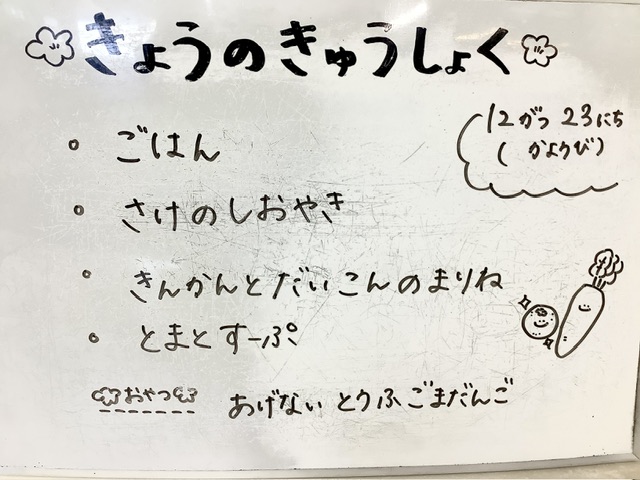 きょうのきゅうしょく
12がつ 23にち
(かようび)
ごはん
さけのしおやき
きんかんとだいこんのまりね
とまとすーぷ
おやつ あげない とりふごまだんご